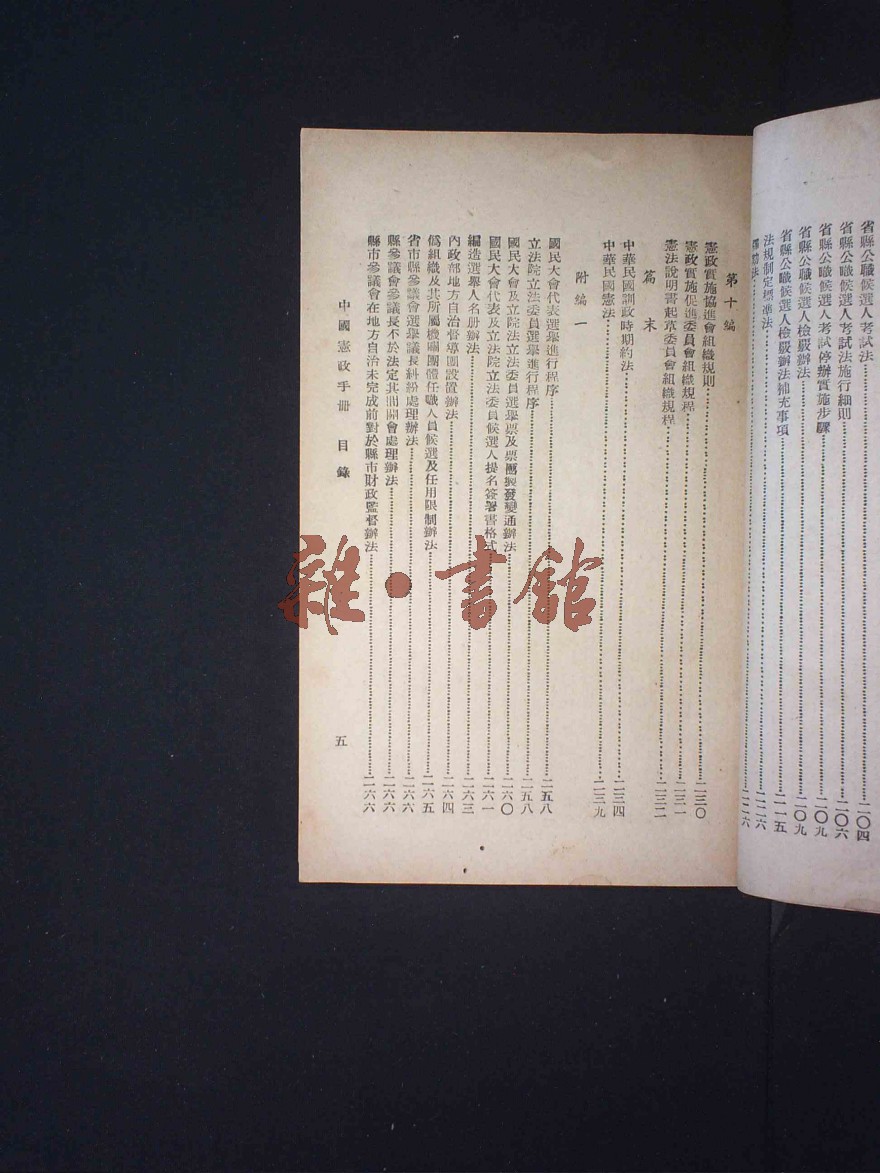 省縣公職候選人考試法…………二〇四
省縣公職候選人考試法施行細則…………二〇六
省縣公職候選人考試停辦實施步驟…………二〇九
省縣公職候選人檢覈辦法…………二〇九
省縣公職候選人檢覈辦法補充事項…………二一五
法規制定標準法…………二二六
法…………二二六
第十編
憲政實施協進會組織規則…………二三〇
憲政實施促進委員會組織規程…………二三一
憲法說明書起草委員會組織規程…………二三二
篇末
中華民國訓政時期約法…………二三四
中華民國憲法…………二三九
附編一
國民大會代表選舉進行程序…………二五八
立法院立法委員選舉進行程序…………二五八
國民大會及立院法立法委員選舉票及票匭製發變通辦法…………二六〇
國民大會代表及立法院立法委員候選人提名簽署書格式…………二六一
編造選舉人名册辦法…………二六三
內政部地方自治督導團設置辦法…………二六四
僞組織及其所屬機關團體任職人員候選及任用限制辦法…………二六五
省市縣參議會選舉議長糾紛處理辦法…………二六六
縣參議會參議長不於法定其間開會處理辦法…………二六六
縣市參議會在地方自治未完成前對於縣市財政監督辦法…………二六六
中國憲政手册 目錄
五
雜·書館